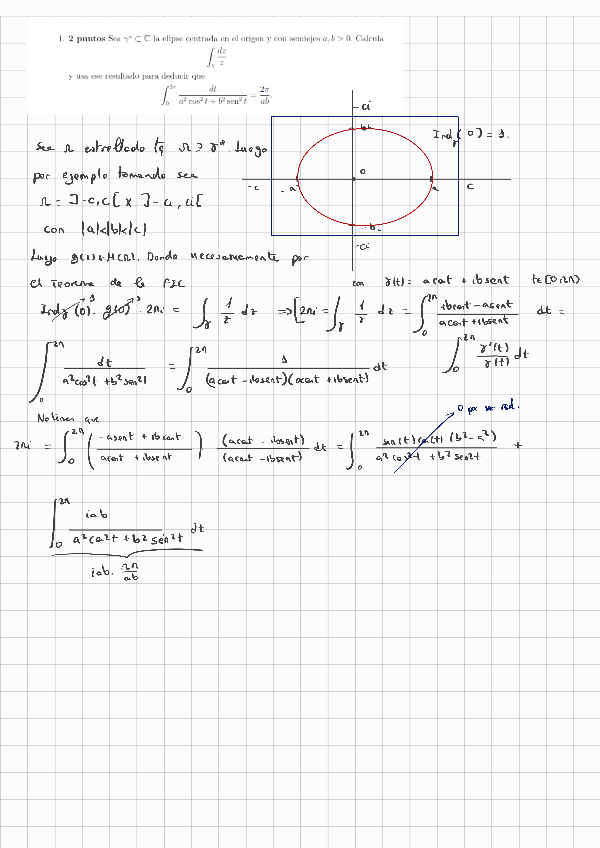 1. 2 puntos Sea γ* ⊂ ℂ la elipse centrada en el origen y con semiejes a, b > 0. Calcula
∫_γ dz/z
y usa ese resultado para deducir que
∫_0^{2π} dt/(a² cos² t + b² sen² t) = 2π/ab.
ci
b
Ind_γ(0) = 1.
-c
-a
0
a
c
-b
-ci
Sea Ω estrellado tq Ω ⊃ γ*. Luego
por ejemplo tomando sea
Ω = ]-c,c[ x ]-ci, ci[
con |a|<|b|<|c|
Luego g(z)=1 ∈ H(Ω). Donde necesariamente por
el Teorema de la FIC
con γ(t) = a cost + ibsent t∈[0,2π)
Ind_γ(0)^1 · g(0)^1 · 2πi = ∫_γ 1/z dz => [2πi = ∫_γ 1/z dz = ∫_0^{2π} (ibcost - asent)/(acost + ibsent) dt =
∫_0^{2π} γ'(t)/γ(t) dt
∫_0^{2π} dt/(a²cos²t + b²sen²t) = ∫_0^{2π} 1/((acost - ibsent)(acost + ibsent)) dt
Notemos que
0 por ser red.
2πi = ∫_0^{2π} ((-asent + ibcost)/(acost + ibsent)) · (acost - ibsent)/(acost - ibsent) dt = ∫_0^{2π} sen(t)cos(t)(b²-a²)/(a²cos²t + b²sen²t) +
∫_0^{2π} iab/(a²cos²t + b²sen²t) dt
iab · 2π/ab